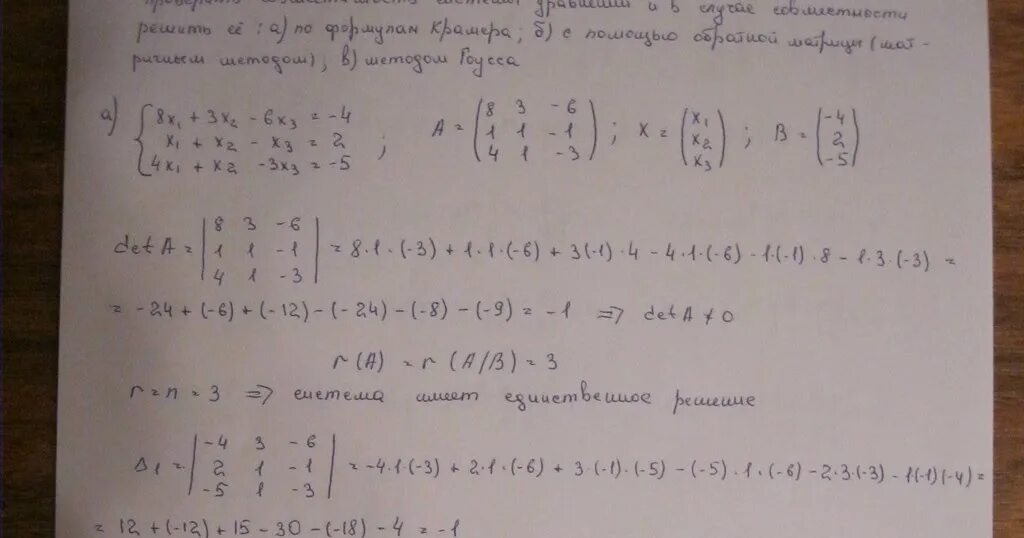 проверить совместность системы уравнений и в случае совместности
решить её: а) по формулам Крамера; б) с помощью обратной матрицы (мат-
ричным методом); в) методом Гаусса
а) { 8x₁ + 3x₂ - 6x₃ = -4
x₁ + x₂ - x₃ = 2
4x₁ + x₂ - 3x₃ = -5 ; A = ( 8 3 -6
1 1 -1
4 1 -3 ) ; X = ( x₁
x₂
x₃ ) ; B = ( -4
2
-5 )
det A = | 8 3 -6
1 1 -1
4 1 -3 | = 8·1·(-3) + 1·1·(-6) + 3(-1)·4 - 4·1·(-6) - 1·(-1)·8 - 1·3·(-3) =
= -24 + (-6) + (-12) - (-24) - (-8) - (-9) = -1 => det A ≠ 0
r(A) = r(A/B) = 3
r = n = 3 => система имеет единственное решение
Δ₁ = | -4 3 -6
2 1 -1
-5 1 -3 | = -4·1·(-3) + 2·1·(-6) + 3·(-1)·(-5) - (-5)·1·(-6) - 2·3·(-3) - 1(-1)(-4) =
= 12 + (-12) + 15 - 30 - (-18) - 4 = -1